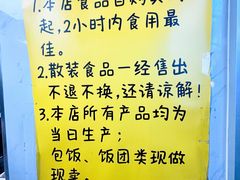 1.本店食品自购买
起,2小时内食用最
佳。
2.散装食品一经售出
不退不换,还请谅解!
3.本店所有产品均为
当日生产;
包饭、饭团类现做
现卖。